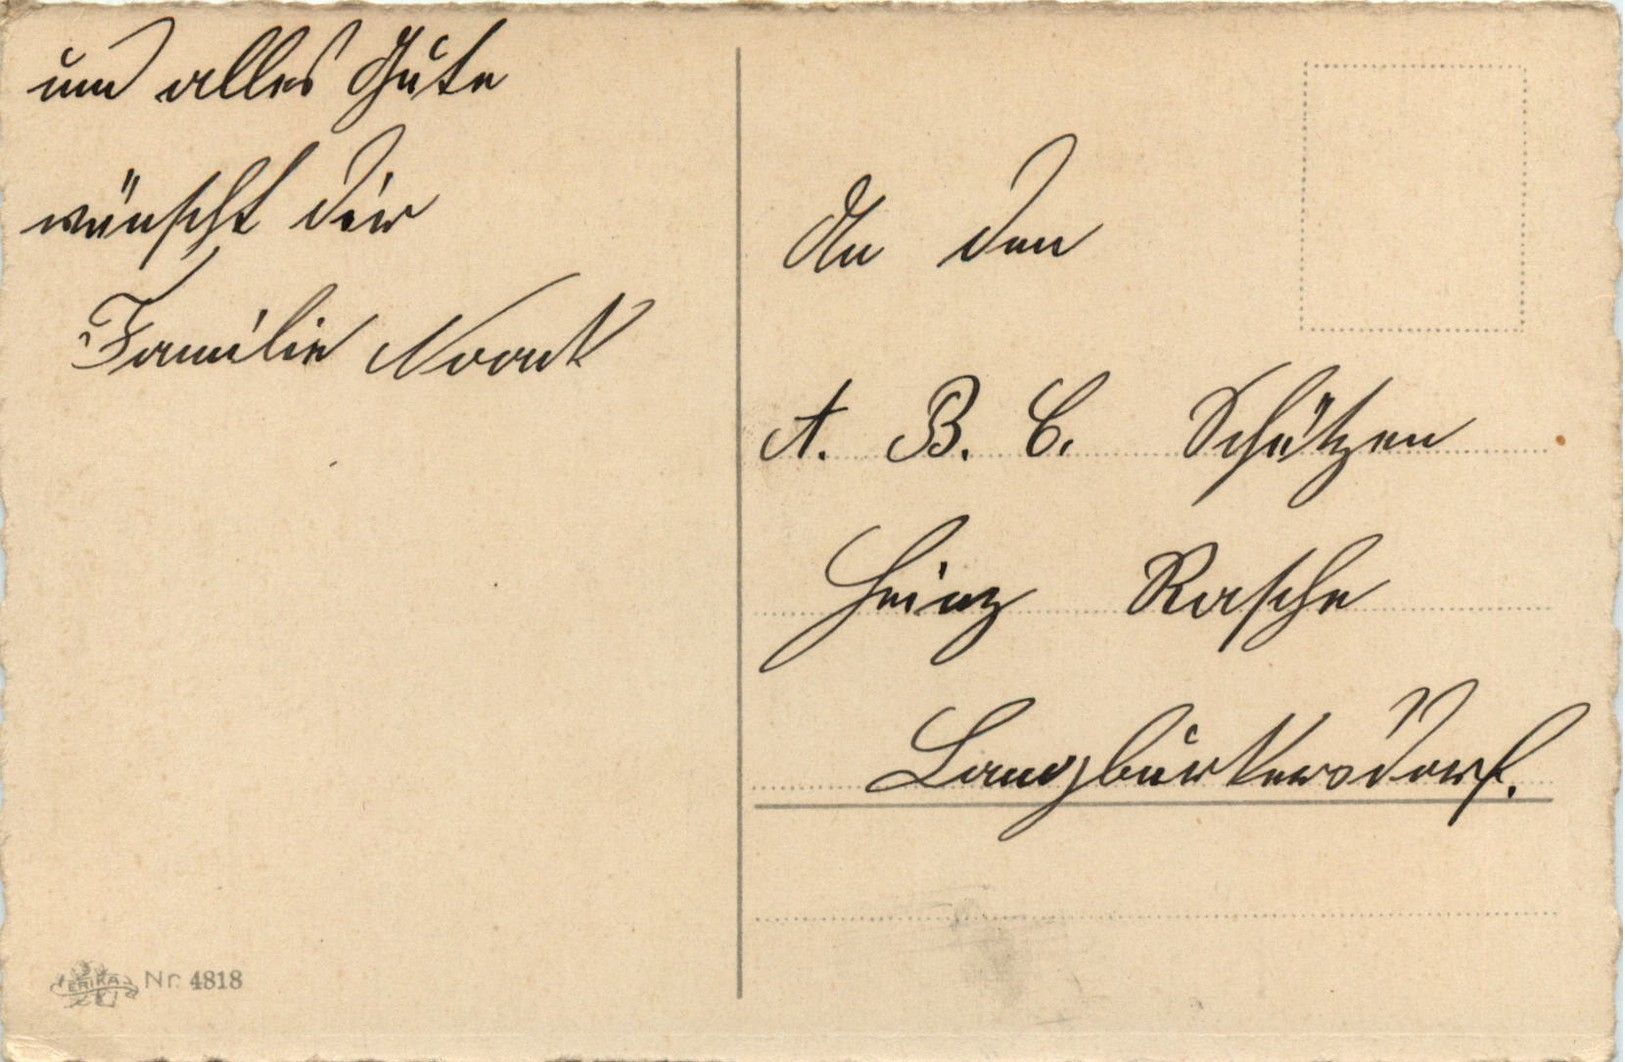 und alles Gute
wünscht dir
Familie Noack
An den
A. B. C. Schützen
Heinz Rasche
Langburkersdorf.
ERIKA Nr. 4818